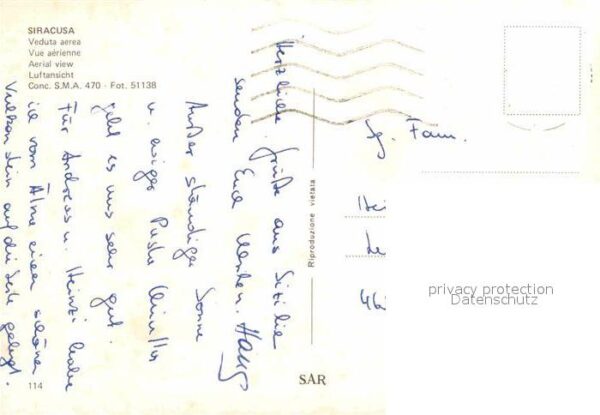 SIRACUSA
Veduta aerea
Vue aérienne
Aerial view
Luftansicht
Conc. S.M.A. 470 - Fot. 51138
Herzliche Grüße aus Sizilien
senden Euch
Außer ständiger Sonne
u. ewiger
geht es uns sehr gut.
Für Andreas u. Heinzi habe
ich vom Ätna einen schönen
Vulkanstein auf die Seite gelegt.
Riproduzione vietata
Fam.
privacy protection
Datenschutz
114
SAR